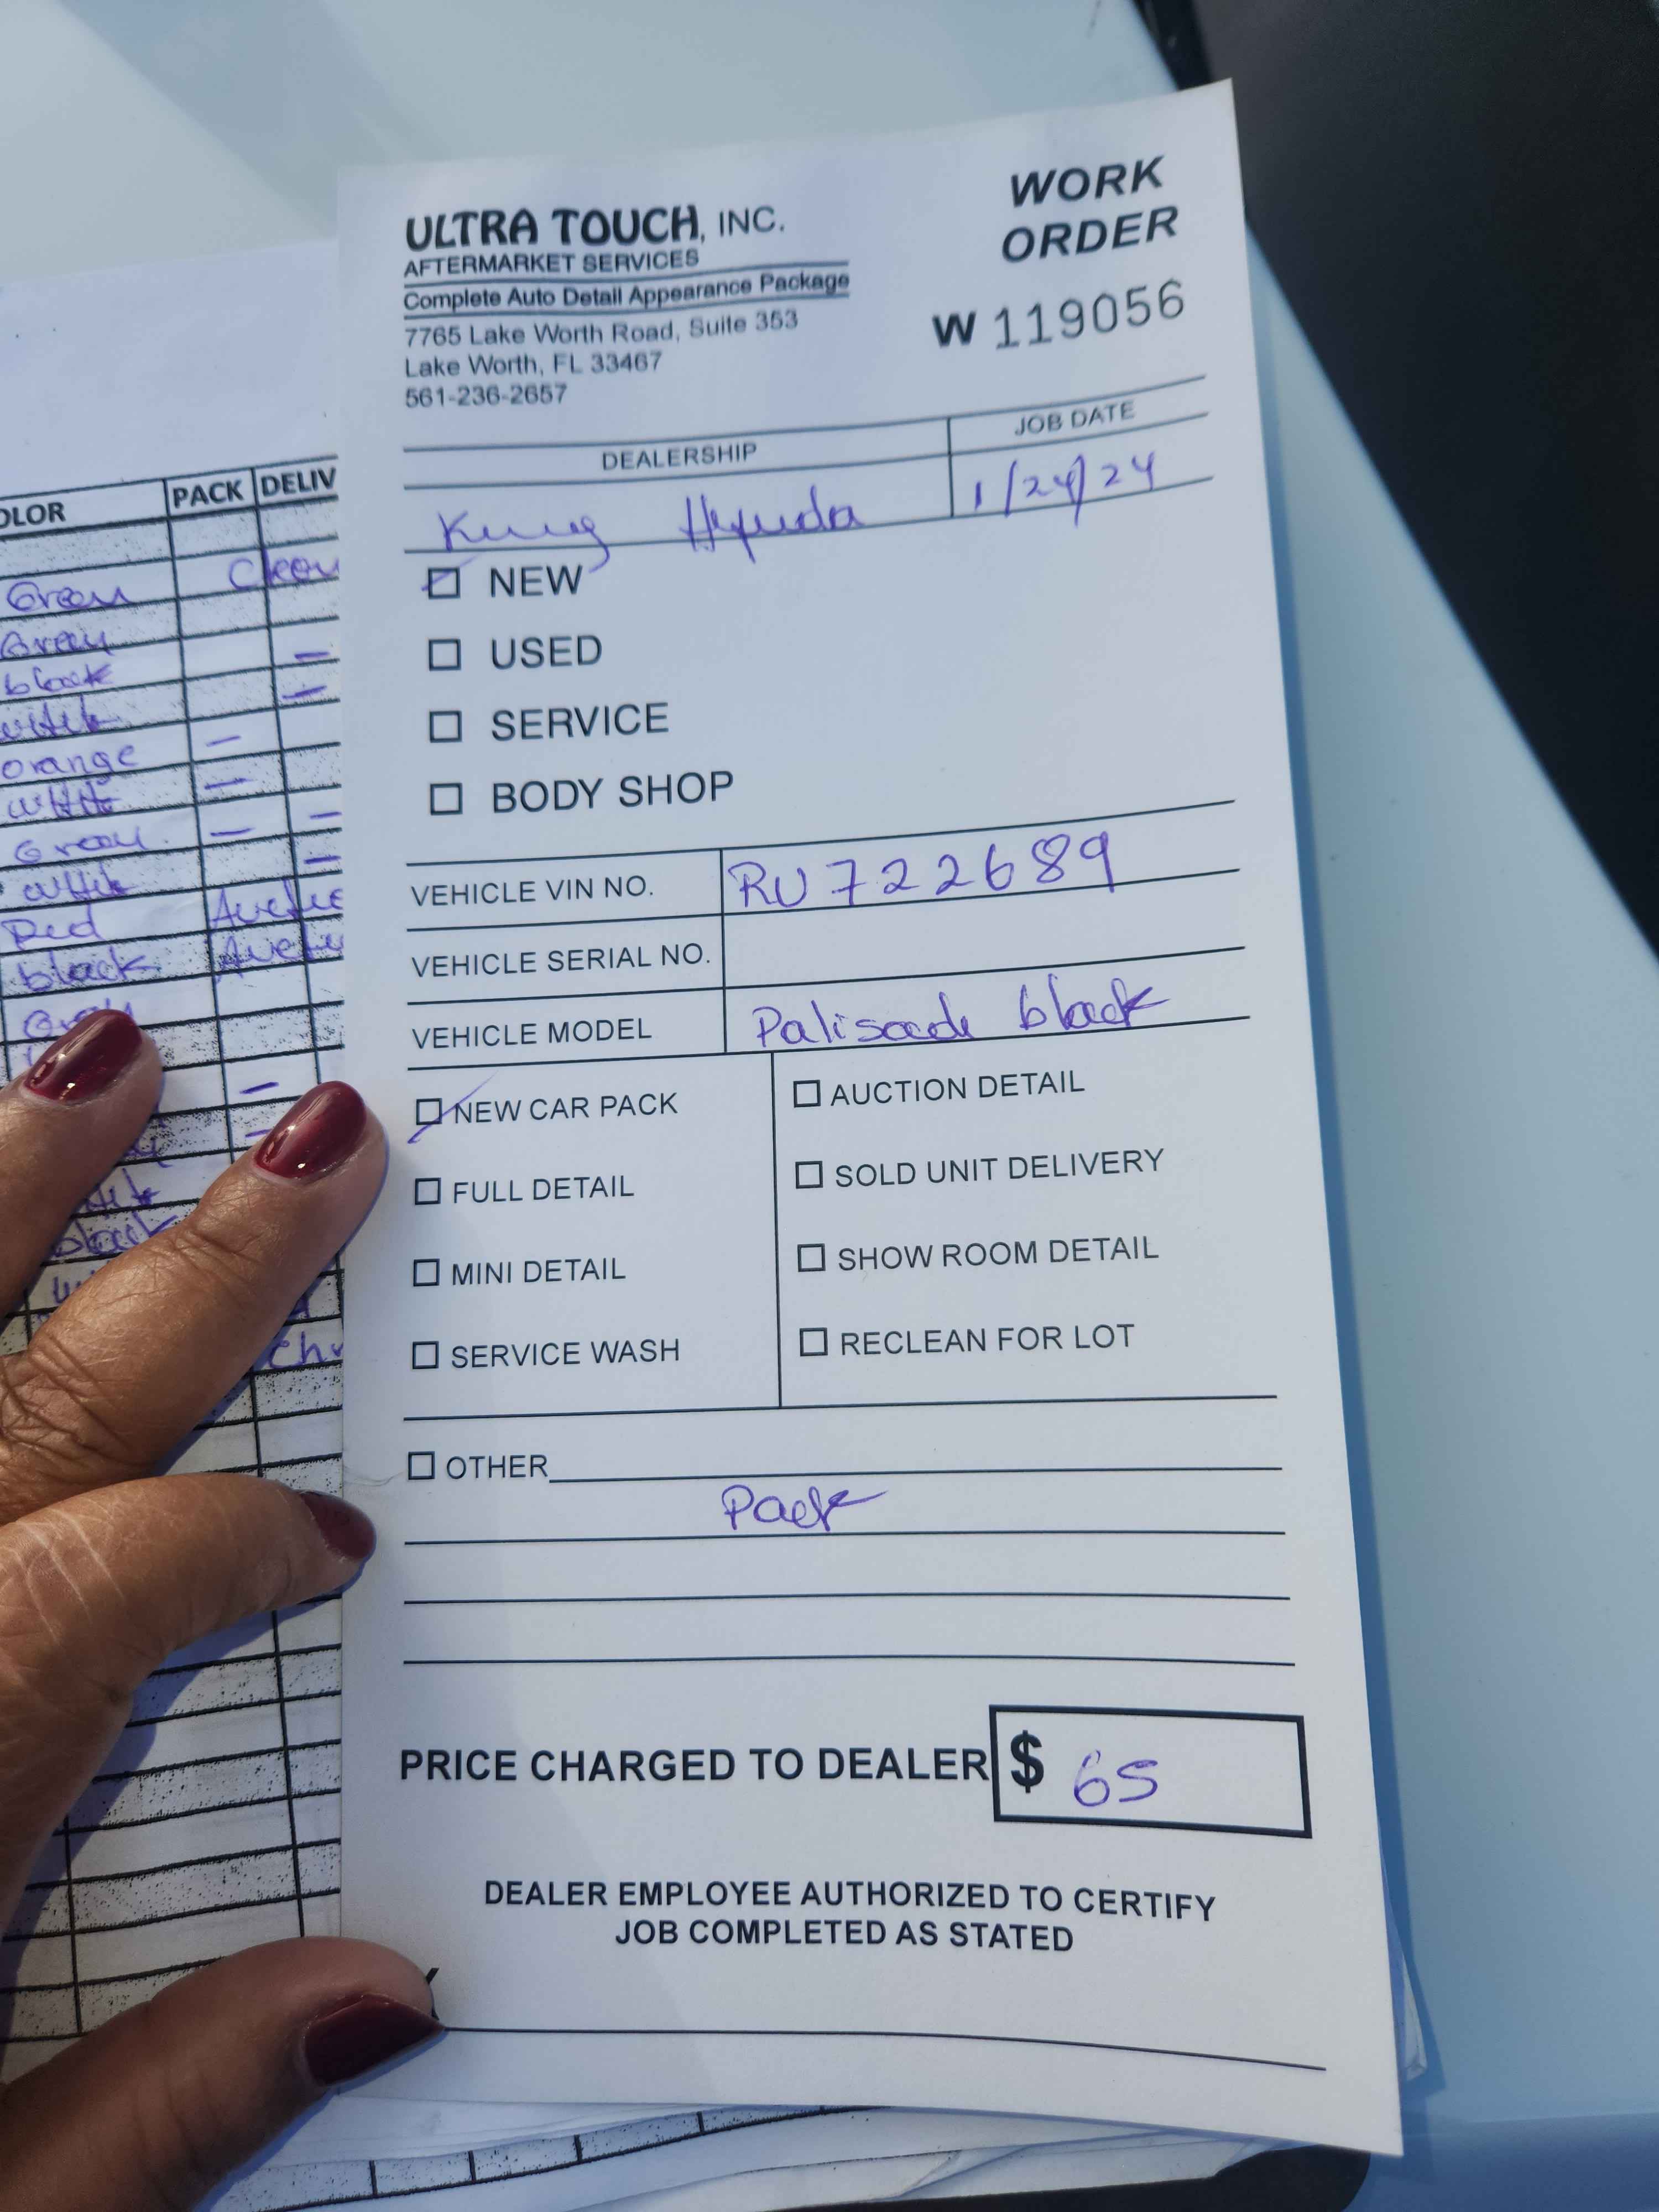 ULTRA TOUCH, INC.
AFTERMARKET SERVICES
Complete Auto Detail Appearance Package
7765 Lake Worth Road, Suite 353
Lake Worth, FL 33467
561-236-2657
WORK
ORDER
W 119056
DEALERSHIP JOB DATE
King 1/24/24
NEW
USED
SERVICE
BODY SHOP
VEHICLE VIN NO. RU722689
VEHICLE SERIAL NO.
VEHICLE MODEL Palisade black
NEW CAR PACK
FULL DETAIL
MINI DETAIL
SERVICE WASH
AUCTION DETAIL
SOLD UNIT DELIVERY
SHOW ROOM DETAIL
RECLEAN FOR LOT
OTHER
Pack
PRICE CHARGED TO DEALER $ 65
DEALER EMPLOYEE AUTHORIZED TO CERTIFY
JOB COMPLETED AS STATED
OLOR PACK DELIV
Green Clean
Green
black
white
orange
white
Green
white
Red
black
black